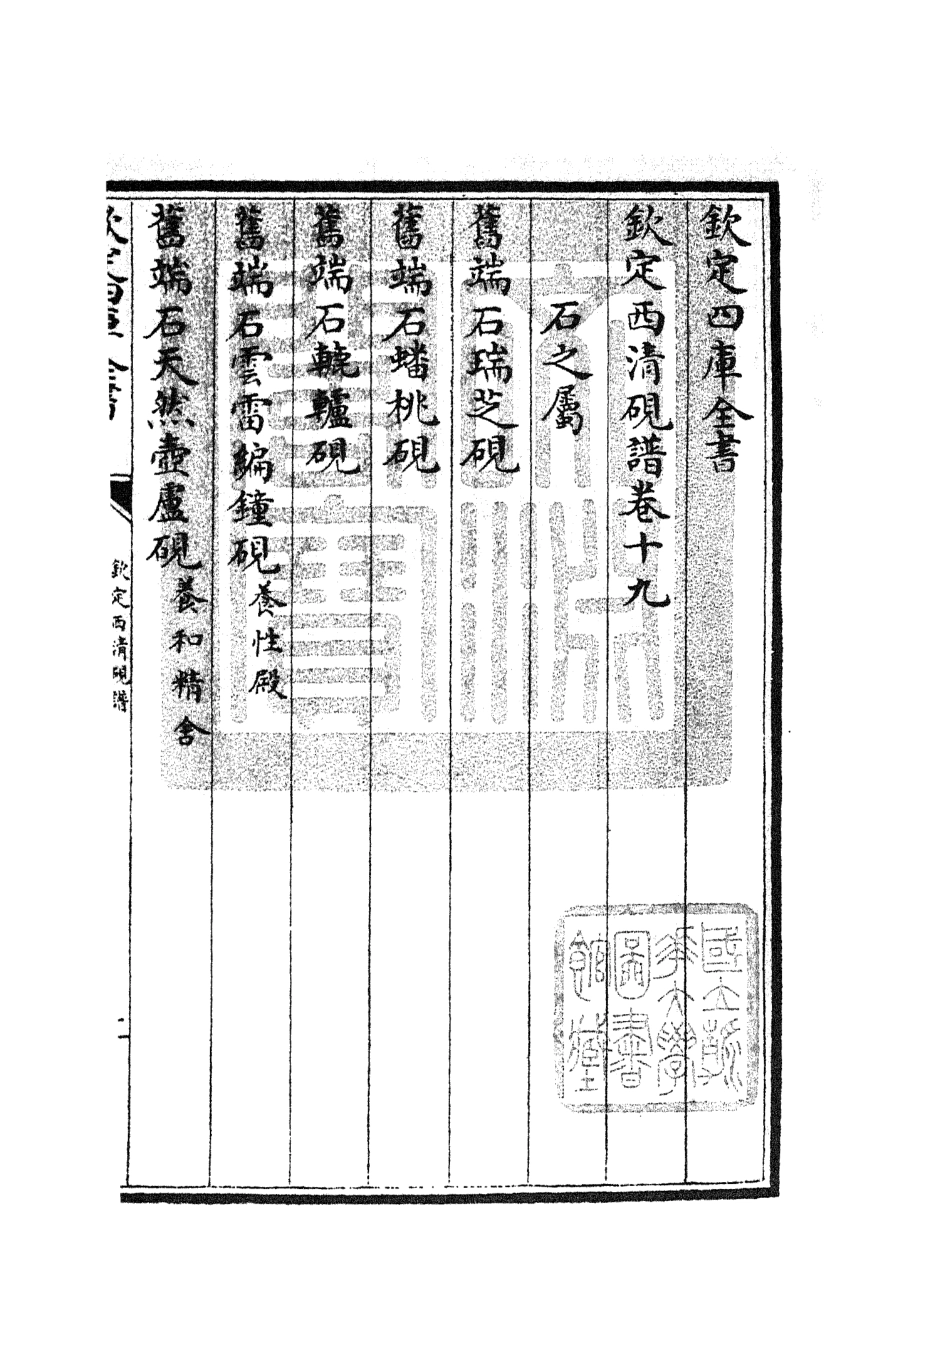 欽定四庫全書
欽定西清硯譜卷十九
石之屬
舊端石瑞芝硯
舊端石蟠桃硯
舊端石轆轤硯
舊端石雲雷編鐘硯養性殿
舊端石天然壺盧硯養和精舍
欽定四庫全書
欽定西清硯譜
文淵閣寶
國立浙江大學圖書館藏